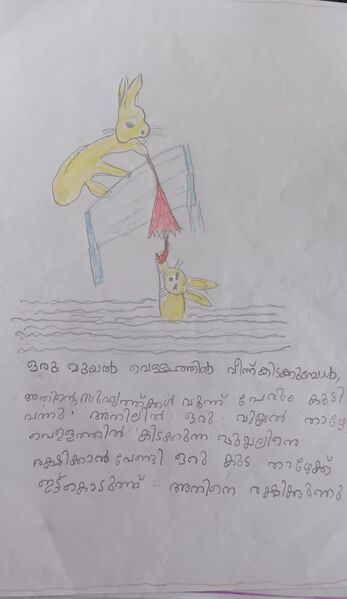 ഒരു മുയൽ വെള്ളത്തിൽ വീണ്കിടക്കുമ്പോൾ,
അതിന്റെ സുഹൃത്ത്ക്കൾ വന്ന് പേരും കൂടി
വന്നു അതിലിൽ ഒരു മുയൽ താഴേ
വെള്ളത്തിൽ കിടക്കുന്ന മുയലിനെ
രക്ഷിക്കാൻ വേണ്ടി ഒരു കുട താഴേക്ക്
ഇട്ട്കൊടുത്ത് - അതിനെ രക്ഷിക്കുന്നു